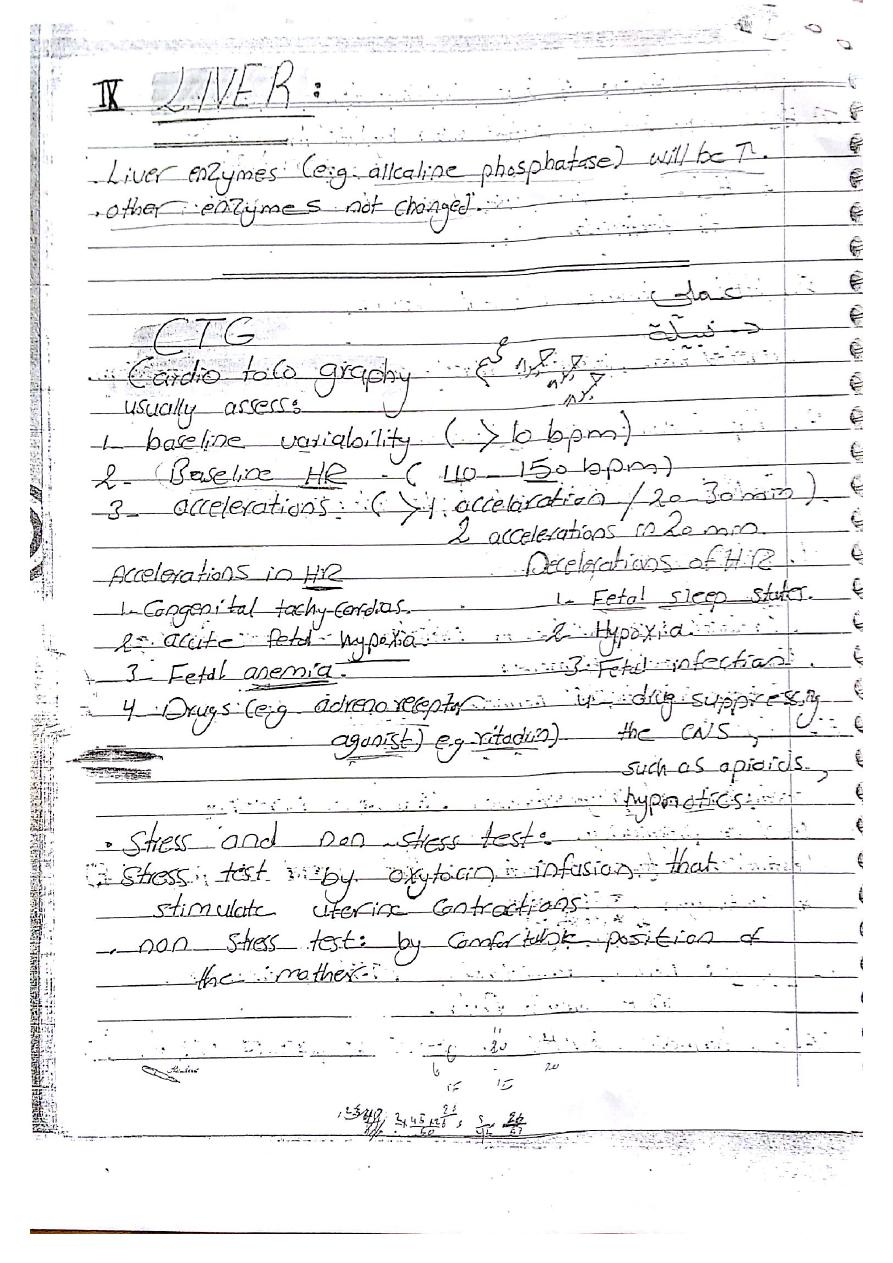 IX LIVER :
. Liver enzymes (e.g. allcaline phosphatase) will be ↑.
. other enzymes not changed.
عملي
د. نبيلة
CTG
Cardio toco graphy
usually assess:
1- baseline variability ( > 10 bpm)
2- (Baseline HR - ( 110 - 150 bpm)
3- accelerations: ( > 1 acceleration / 20-30 min ).
2 accelerations in 20 min.
Accelerations in HR
1- Congenital tachy-cardias.
2- accute fetal hypoxia.
3- Fetal anemia.
4 Drugs (e.g adrenoreceptor
agonist) e.g ritadrin)
Decelerations of HR.
1- Fetal sleep states.
2- Hypoxia.
3- Fetal infection.
4- drug suppressing
the CNS,
such as opioids,
hypnotics.
. Stress and non-stress test:
. Stress test by oxytocin infusion that
stimulate uterine contractions.
. non stress test: by comfortable position of
the mother.